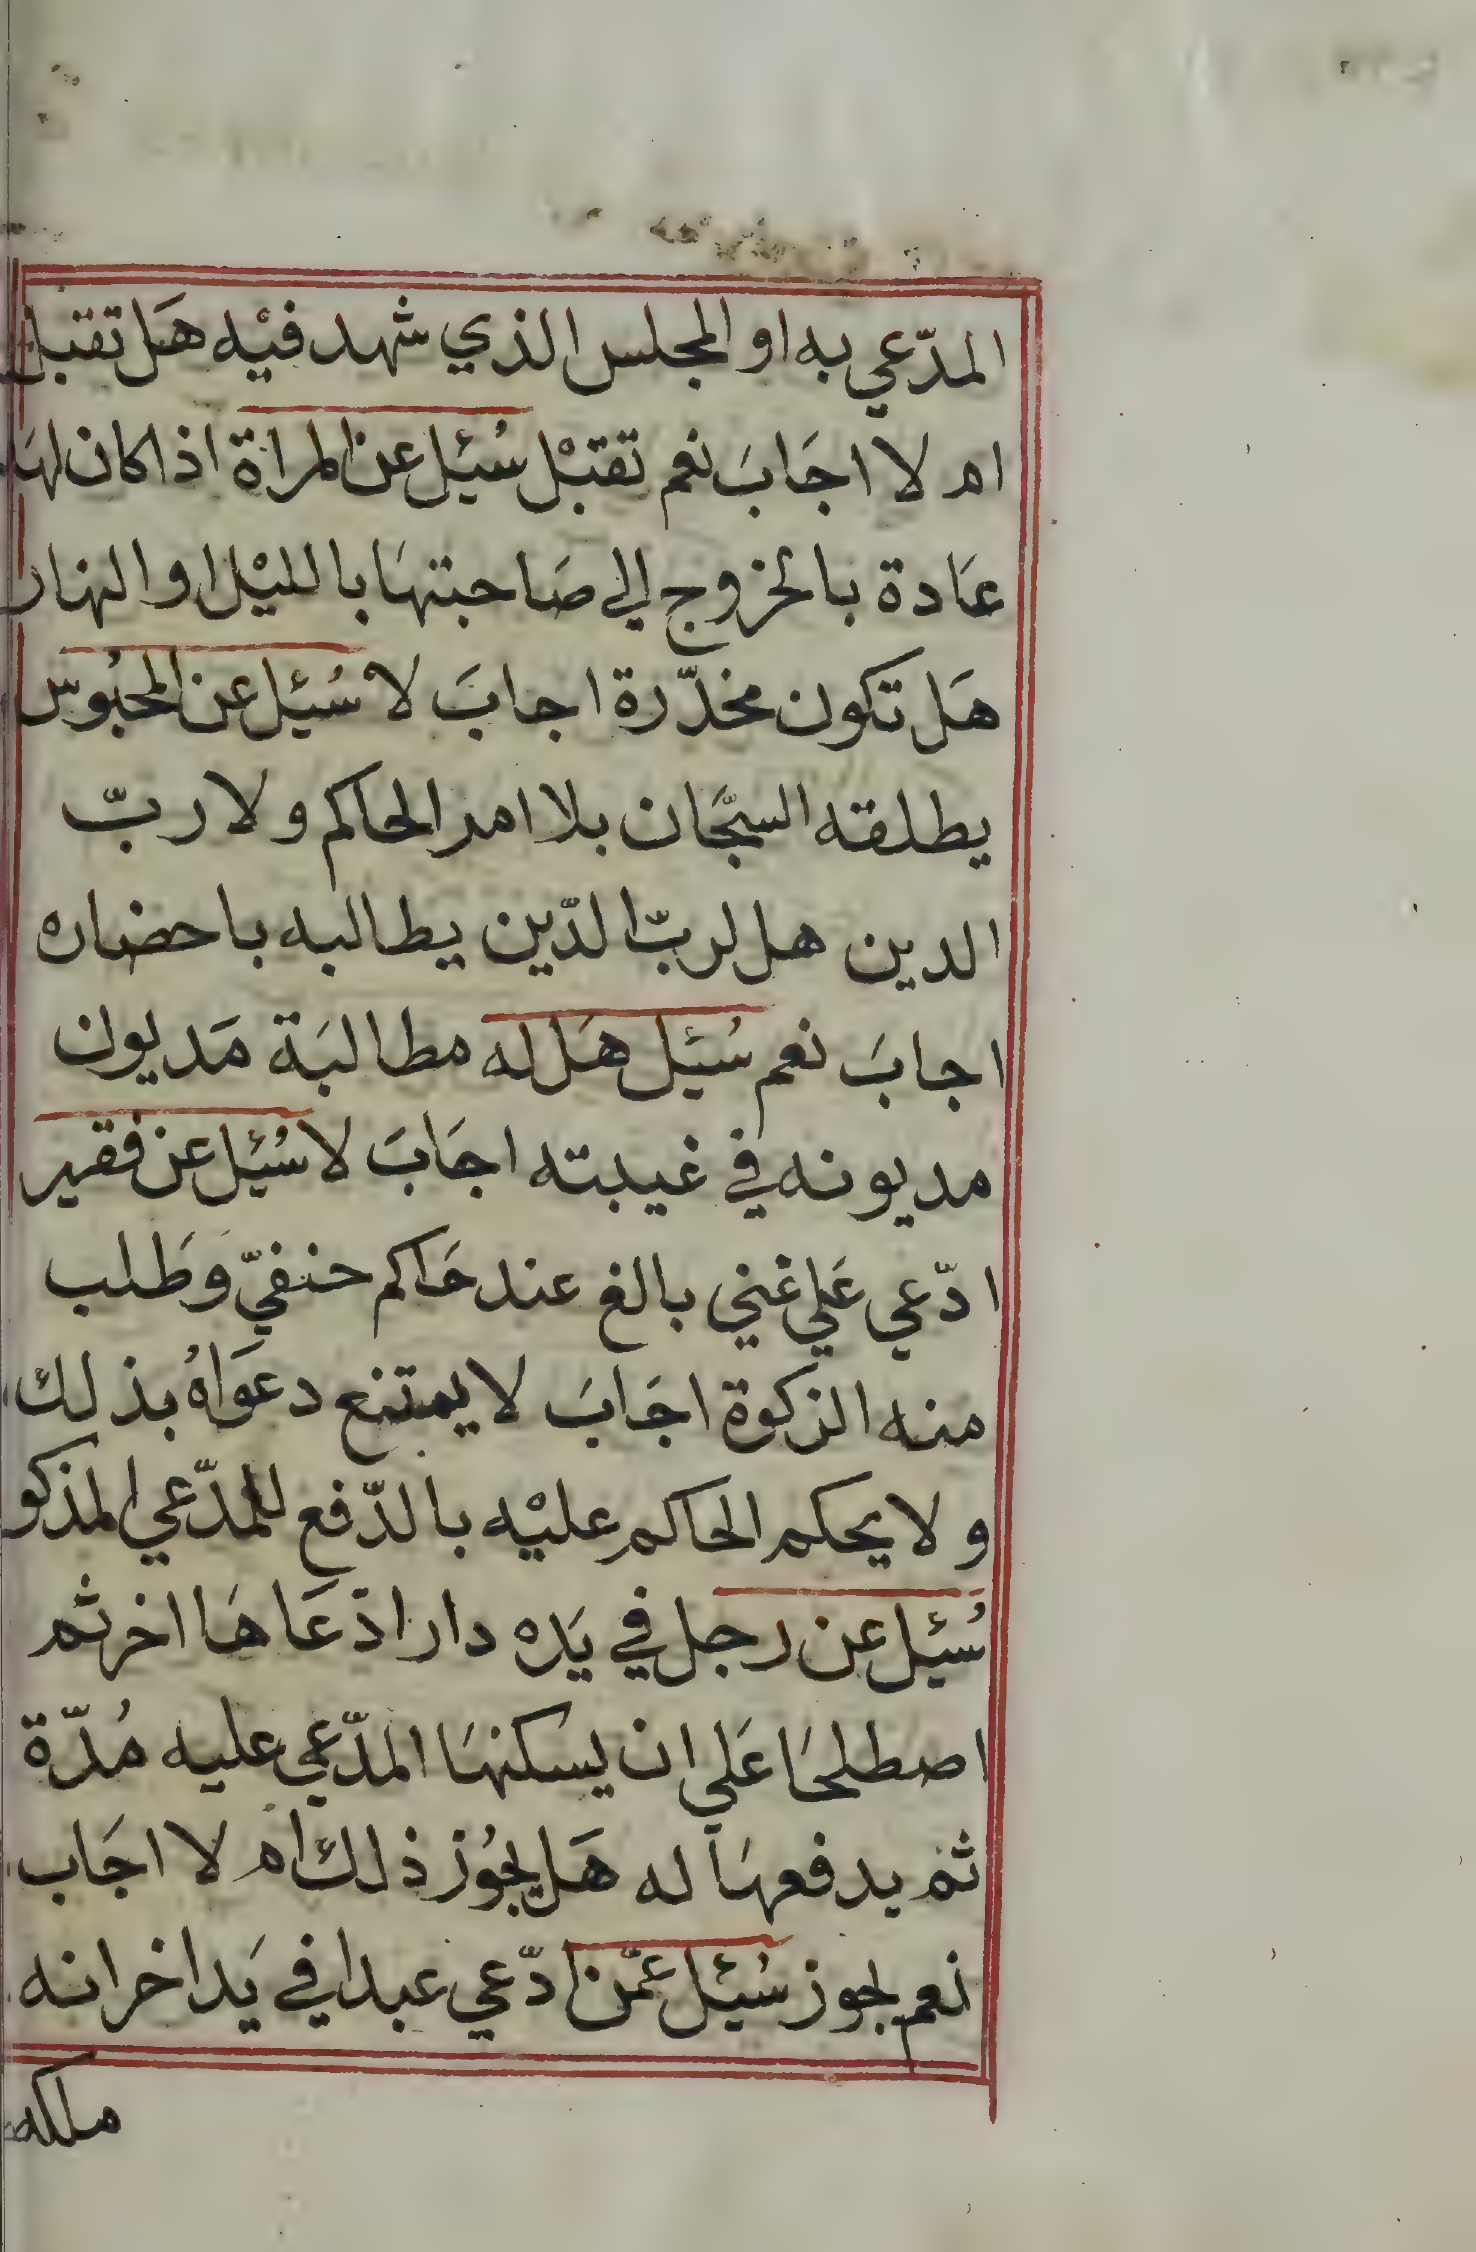 المدّعي به او المجلس الذي شهد فيْه هَل تقبل
ام لا اجَابَ نعم تقبْل سُئِل عن المراة اذا كان لهَا
عَادة بالخروج الي صَاحبتهَا بالليْل او النهار
هَل تكون مخدّرة اجابَ لا سُئِل عن المحبُوس
يطلقه السجَّان بلا امر الحاكم ولا ربّ
الدين هل لربّ الدّين يطالبه باحضاره
اجابَ نعم سُئِل هَل له مطالبَة مَديون
مديونه في غيبته اجَابَ لا سُئِل عن فقير
ادّعي عَلي غني بالغ عند حَاكم حنفيّ وَطَلب
منه الزكوة اجَابَ لا يمتنع دعوَاهُ بذلك
ولا يحكم الحاكم عليْه بالدّفع للمدّعي المذكو
سُئِل عن رجل في يَده دار ادعَاهَا اخر ثم
اصطلحَا عَلي ان يسكنهَا المدّعي عليه مُدّة
ثم يدفعهَا له هَل يجُوز ذلك ام لا اجَاب
نعم يجوز سُئِل عمّن ادّعي عبدا في يَد اخر انه
ملكه